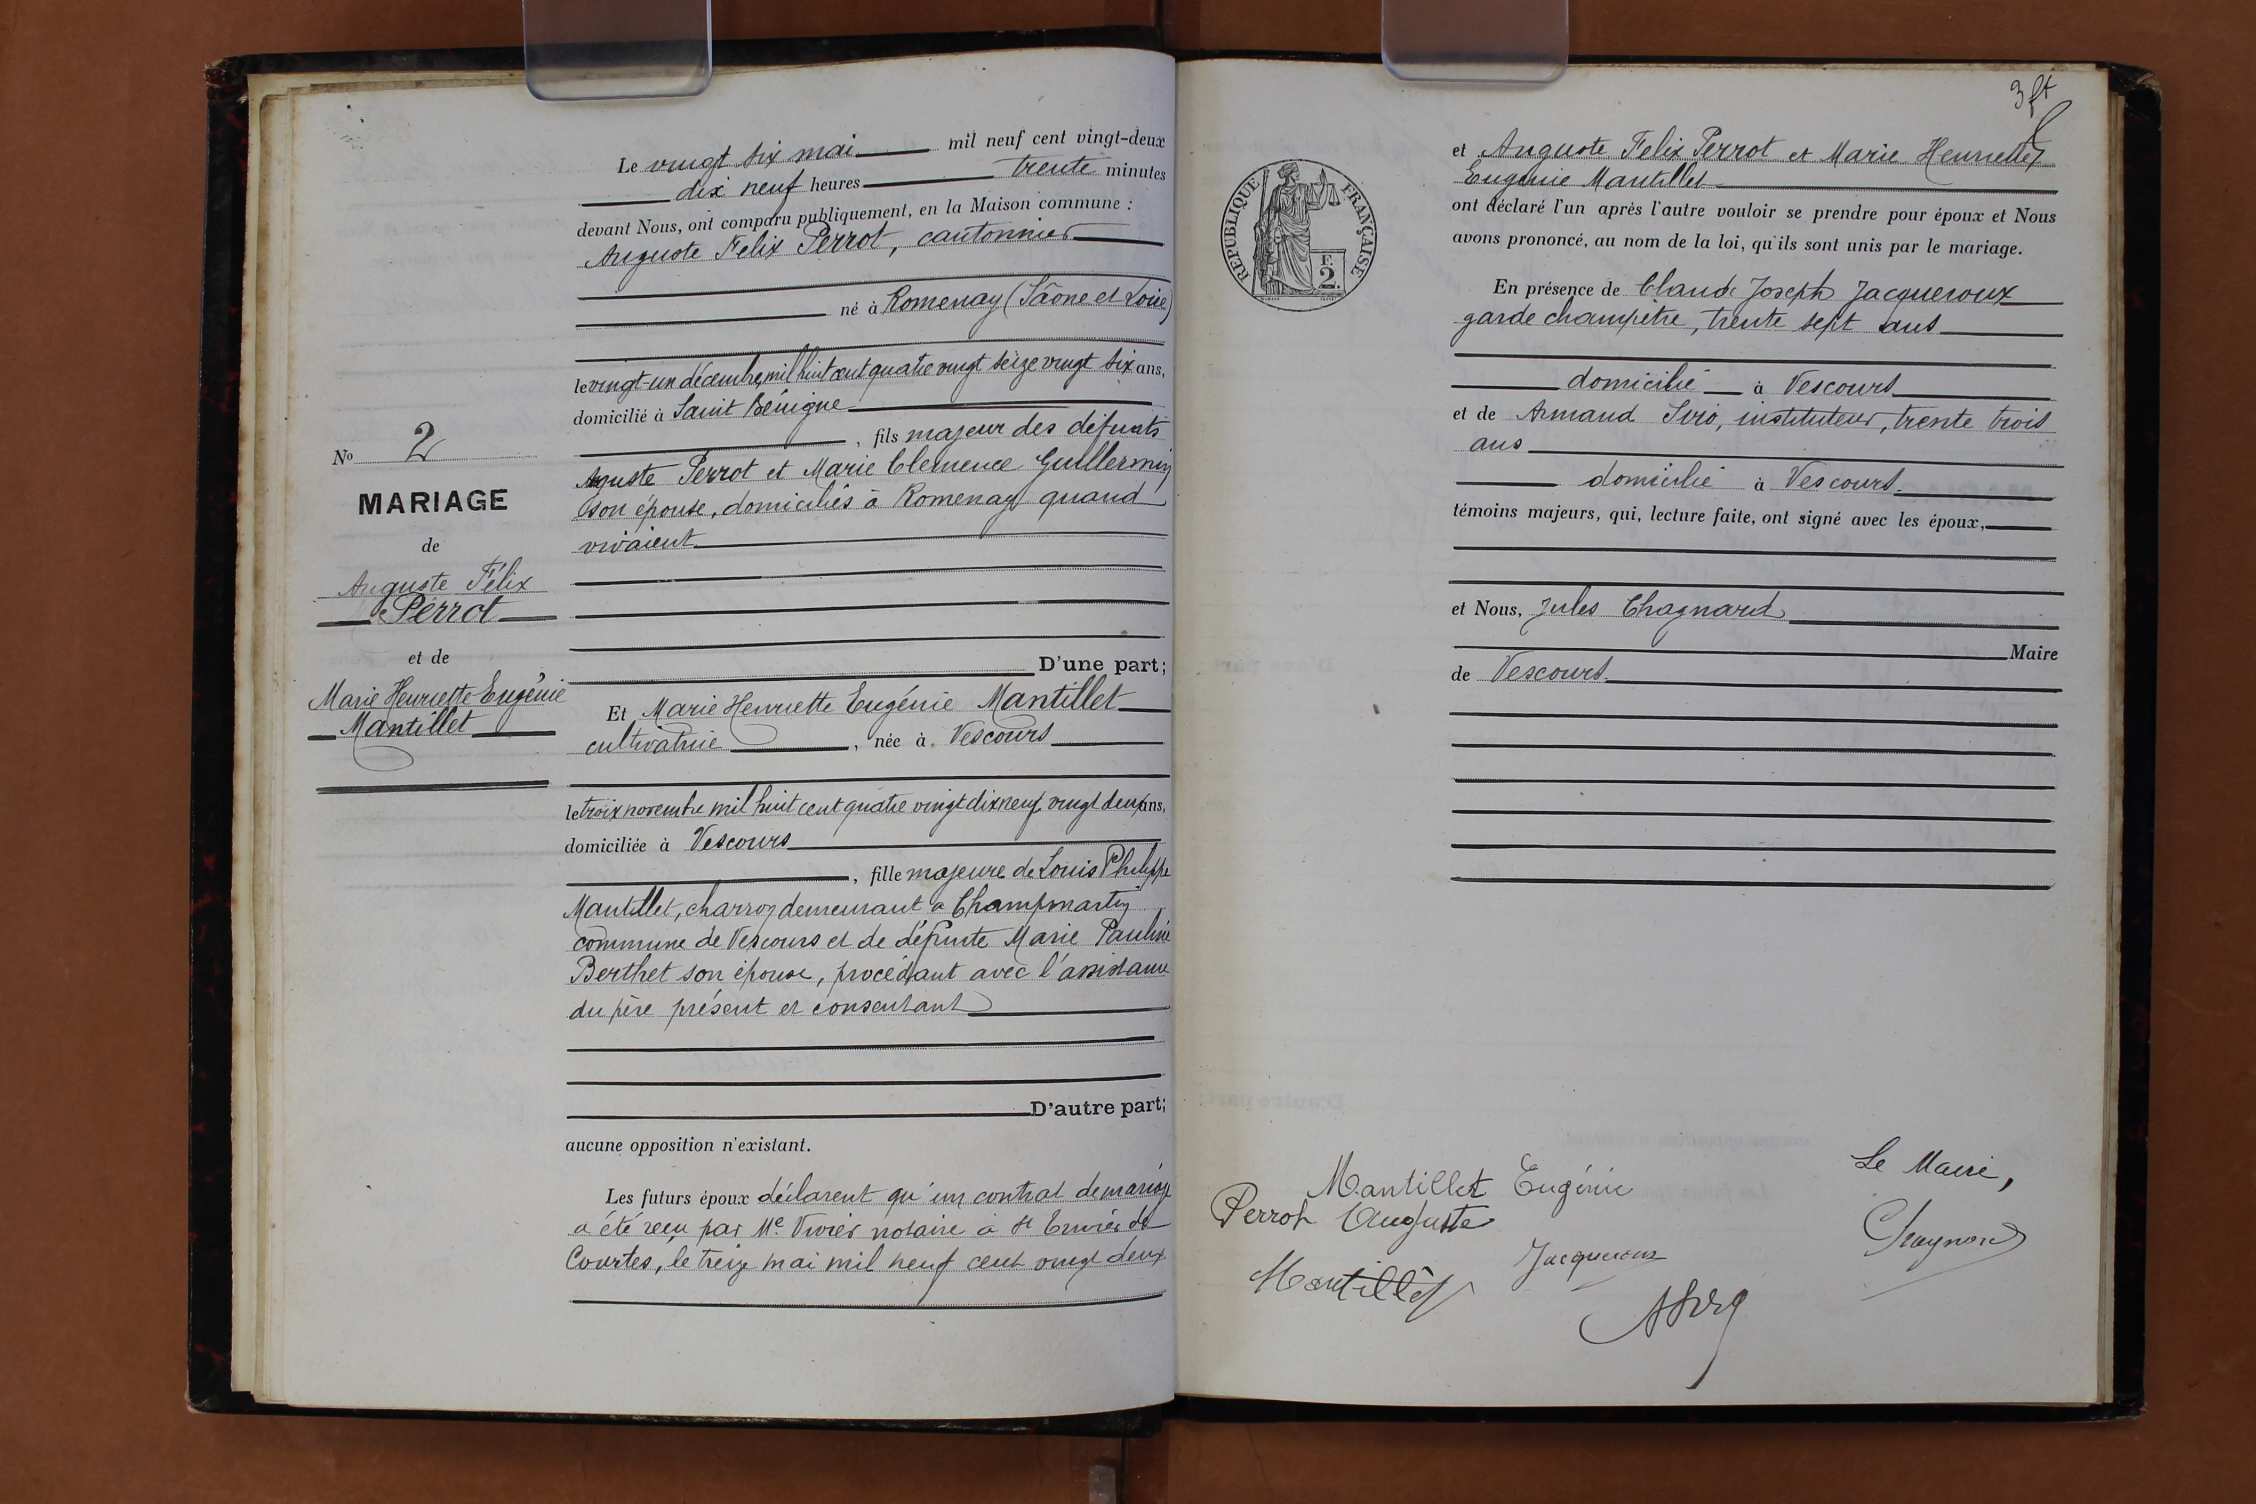 Le vingt six mai mil neuf cent vingt-deux
dix neuf heures trente minutes
devant Nous, ont comparu publiquement, en la Maison commune :
Auguste Felix Perrot, cantonnier
né à Romenay (Saône et Loire)
le vingt-un décembre mil huit cent quatre vingt seize vingt six ans,
domicilié à Saint Bénigne
, fils majeur des défunts
Auguste Perrot et Marie Clemence Guillermin
son épouse, domiciliés à Romenay quand
vivaient
D'une part;
Et Marie Henriette Eugénie Mantillet
cultivatrice, née à Vescours
le trois novembre mil huit cent quatre vingt dix neuf vingt deux ans,
domiciliée à Vescours
, fille majeure de Louis Philippe
Mantillet, charron demeurant à Champmartin
commune de Vescours et de défunte Marie Pauline
Berthet son épouse, procédant avec l'assistance
du père présent et consentant
D'autre part;
aucune opposition n'existant.
Les futurs époux déclarent qu'un contrat de mariage
a été reçu par Me Vivier notaire à St Trivier de
Courtes, le treize mai mil neuf cent vingt deux
No 2
MARIAGE
de
Auguste Félix
Perrot
et de
Marie Henriette Eugénie
Mantillet
3 ft
RÉPUBLIQUE FRANÇAISE
F.
2.
et Auguste Felix Perrot et Marie Henriette
Eugénie Mantillet
ont déclaré l'un après l'autre vouloir se prendre pour époux et Nous
avons prononcé, au nom de la loi, qu'ils sont unis par le mariage.
En présence de Claude Joseph Jacqueroux
garde champêtre, trente sept ans
domicilié à Vescours
et de Armand Sirio, instituteur, trente trois
ans
domicilié à Vescours
témoins majeurs, qui, lecture faite, ont signé avec les époux,
et Nous, Jules Chagnard
Maire
de Vescours
Mantillet Eugénie
Le Maire,
Perrot Auguste
Chagnard
Jacqueroux
Mantillet